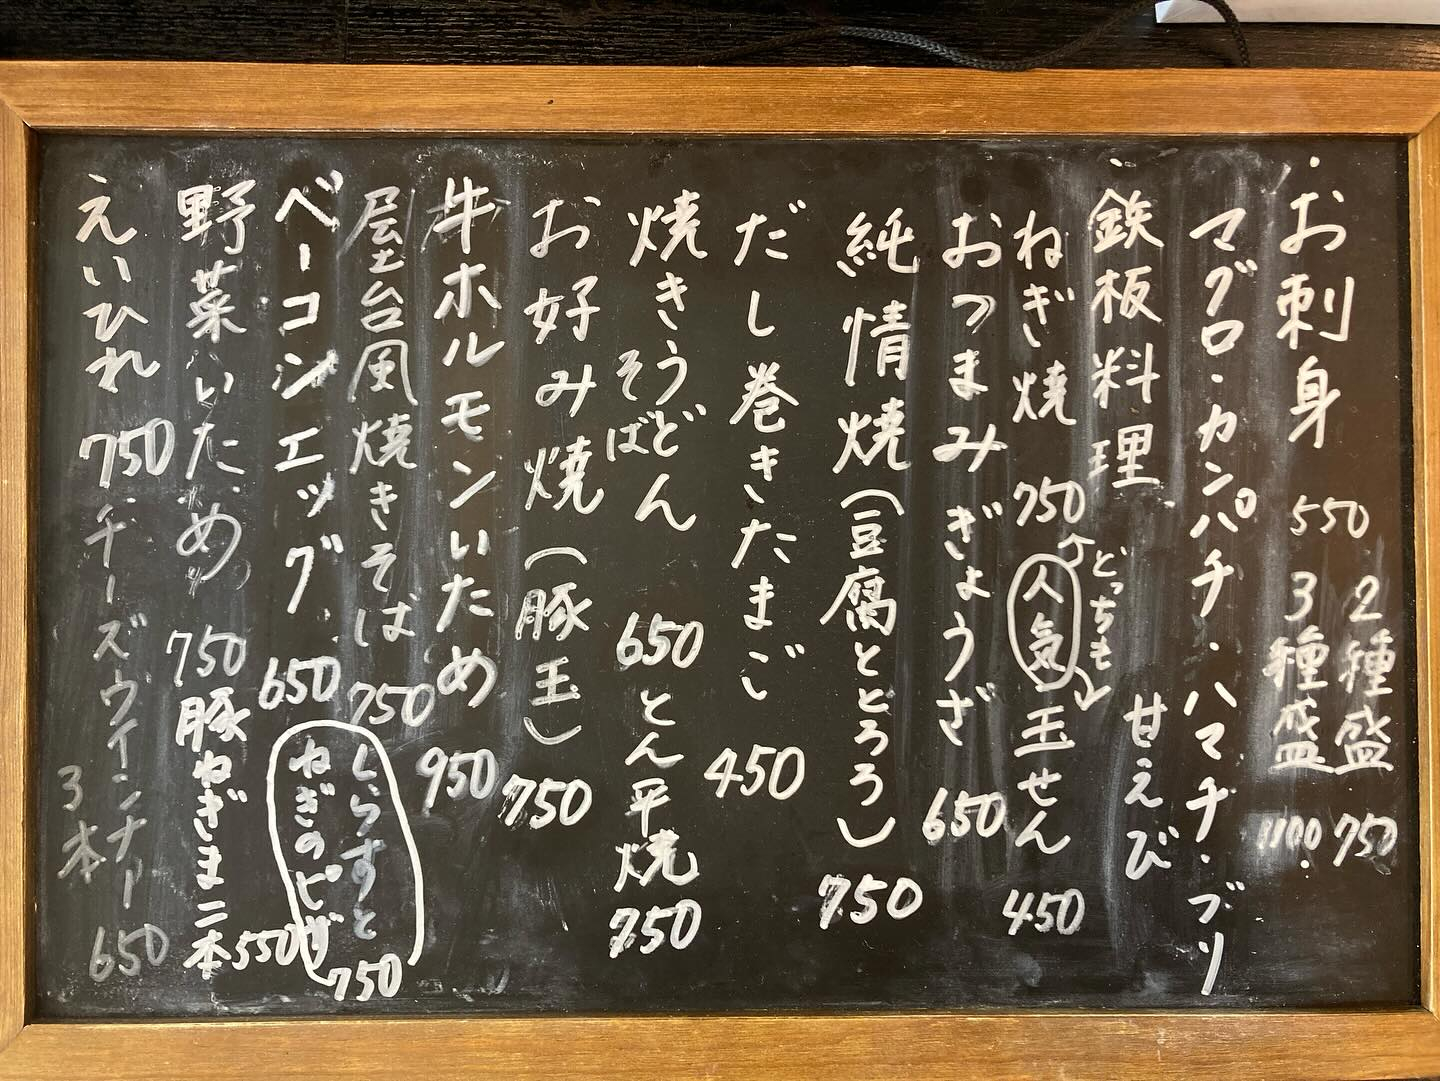 ・お刺身 550 2種盛 750
3種盛 1100.
マグロ・カンパチ・ハマチ・ブリ
甘えび
・鉄板料理
どっちも
ねぎ焼 750 人気 玉せん 450
おつまみぎょうざ 650
純情焼(豆腐ととろろ) 750
だし巻きたまご 450
焼きうどん 650 とん平焼 750
そば
お好み焼(豚玉) 750
牛ホルモンいため 950
屋台風焼きそば 750 しらすと
ベーコンエッグ 650 ねぎのピザ 750
野菜いため 750 豚ねぎま二本 550
えいひれ 750 チーズウインナー
3本 650